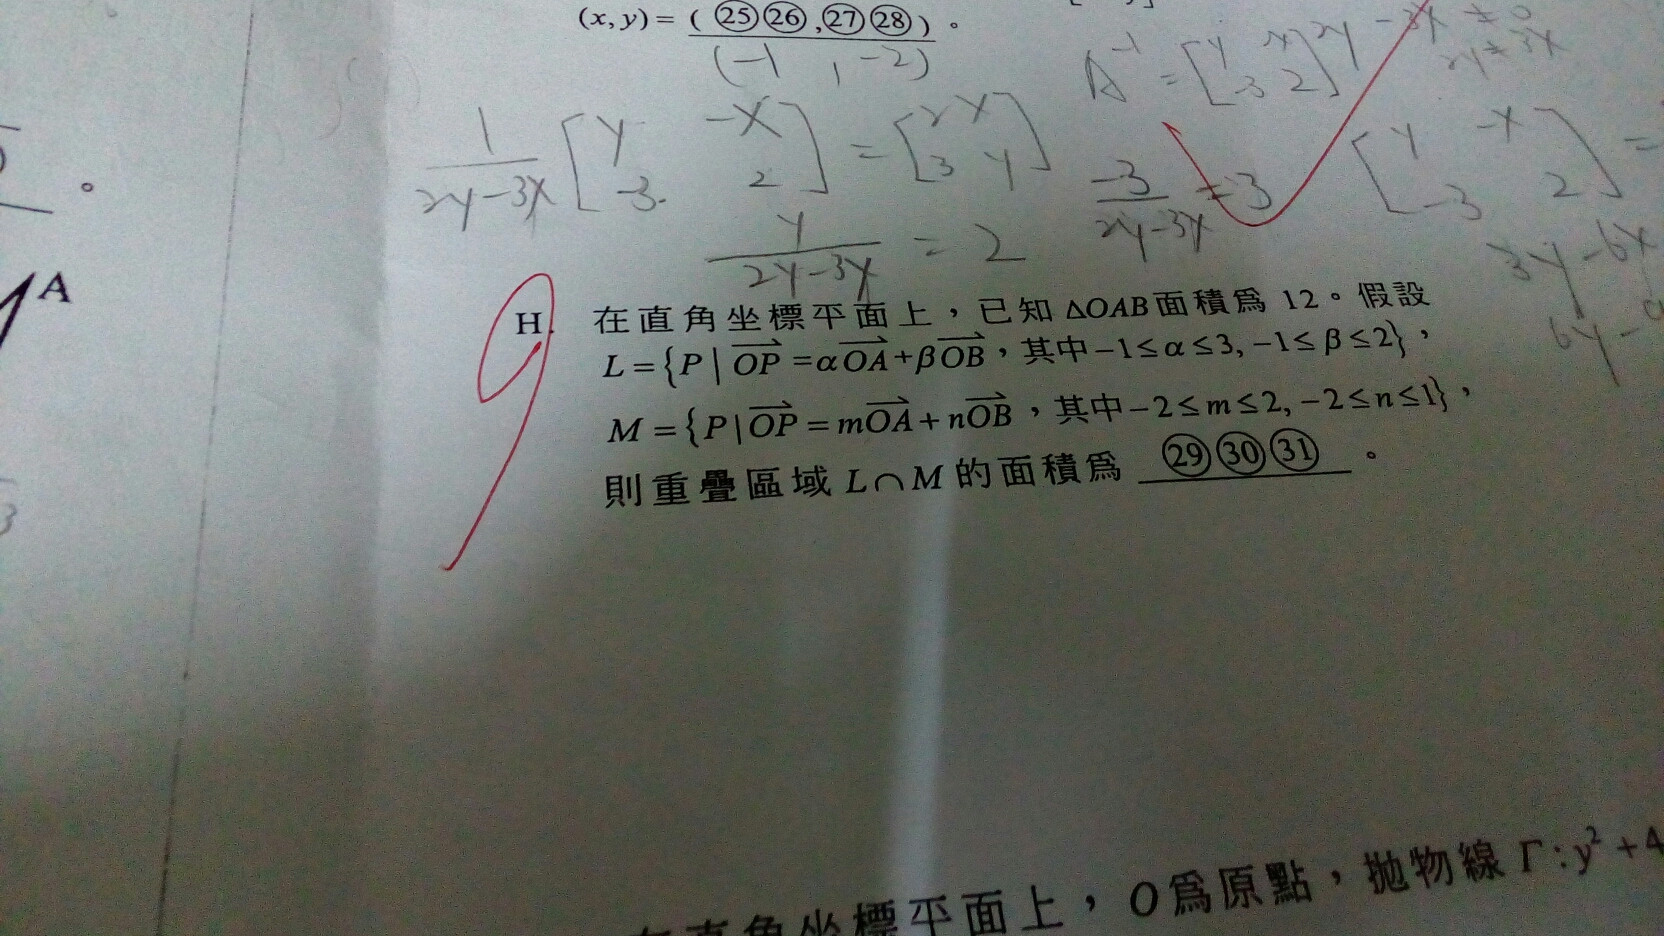 (x, y) = ( ㉕㉖ ,㉗㉘ ) 。
(-1 , -2)
A⁻¹ =
2y - 3x ≠ 0
2y ≠ 3x
1/(2y-3x) [y -x; -3 2] = [2 x; 3 y]
-3/(2y-3x) = 3
[y -x; -3 2] =
y/(2y-3x) = 2
3y-6x
6y-
。
A
3
H. 在直角坐標平面上，已知 ΔOAB 面積爲 12。假設
L = {P | OP = αOA + βOB，其中 -1 ≤ α ≤ 3, -1 ≤ β ≤ 2}，
M = {P | OP = mOA + nOB，其中 -2 ≤ m ≤ 2, -2 ≤ n ≤ 1}，
則重疊區域 L∩M 的面積爲 ㉙㉚㉛ 。
在直角坐標平面上，O爲原點，拋物線 Γ : y² + 4